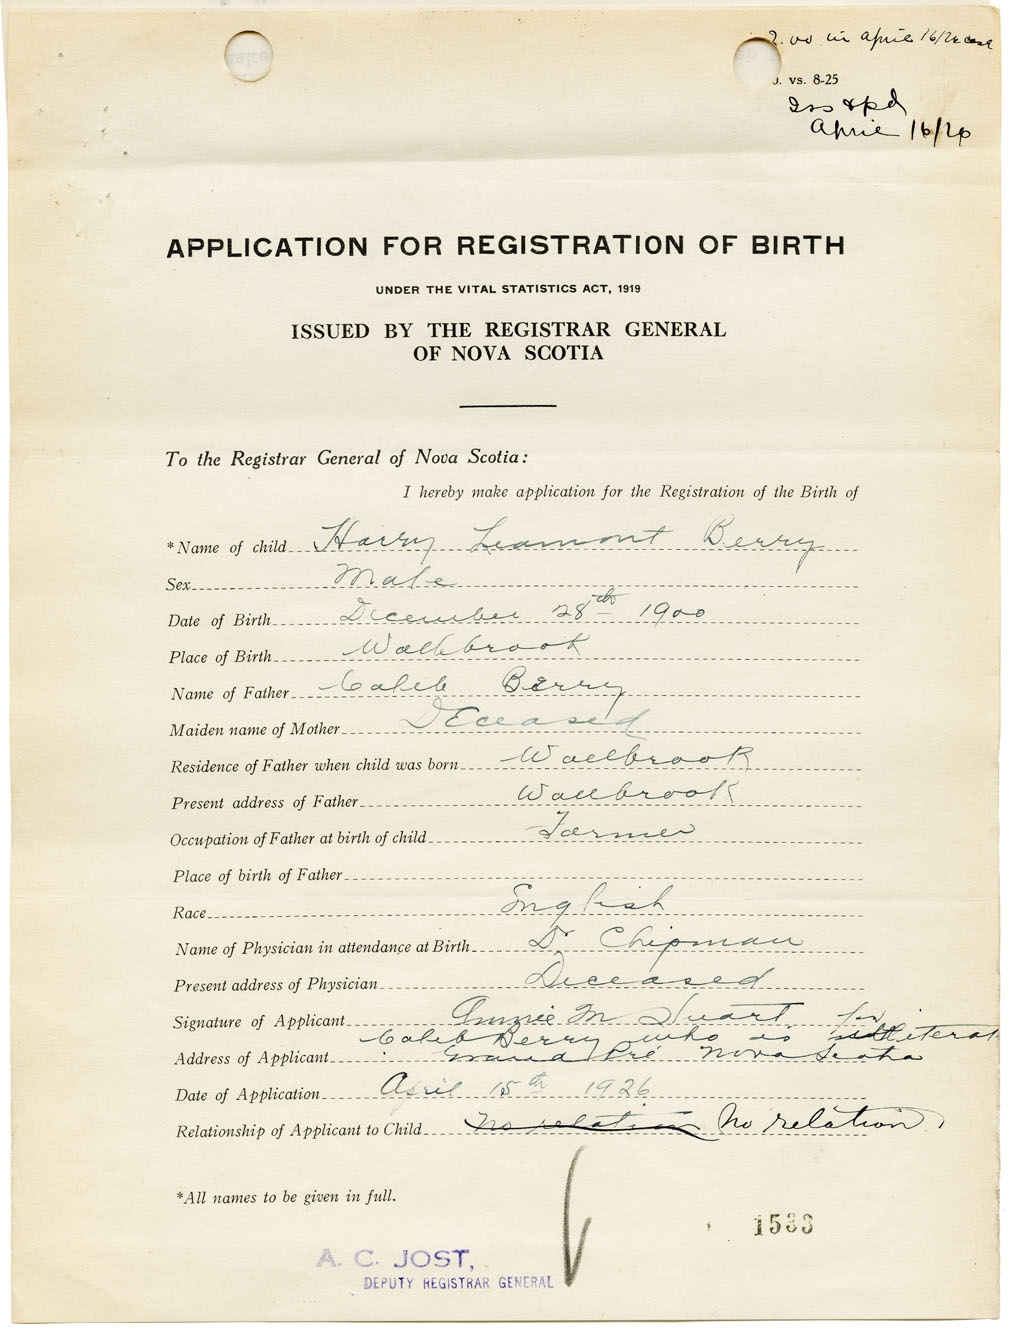 2.00 in April 16/26
vs. 8-25
Iss & pd
April 16/26
APPLICATION FOR REGISTRATION OF BIRTH
UNDER THE VITAL STATISTICS ACT, 1919
ISSUED BY THE REGISTRAR GENERAL
OF NOVA SCOTIA
To the Registrar General of Nova Scotia:
I hereby make application for the Registration of the Birth of
*Name of child Harry Leamont Berry
Sex Male
Date of Birth December 28th 1900
Place of Birth Wallbrook
Name of Father Caleb Berry
Maiden name of Mother Deceased
Residence of Father when child was born Wallbrook
Present address of Father Wallbrook
Occupation of Father at birth of child Farmer
Place of birth of Father
Race English
Name of Physician in attendance at Birth Dr Chipman
Present address of Physician Deceased
Signature of Applicant Annie M Stuart for
Caleb Berry who is
Address of Applicant Grand Pré Nova Scotia
Date of Application April 15th 1926
Relationship of Applicant to Child No relation No relation
*All names to be given in full.
A. C. JOST,
DEPUTY REGISTRAR GENERAL